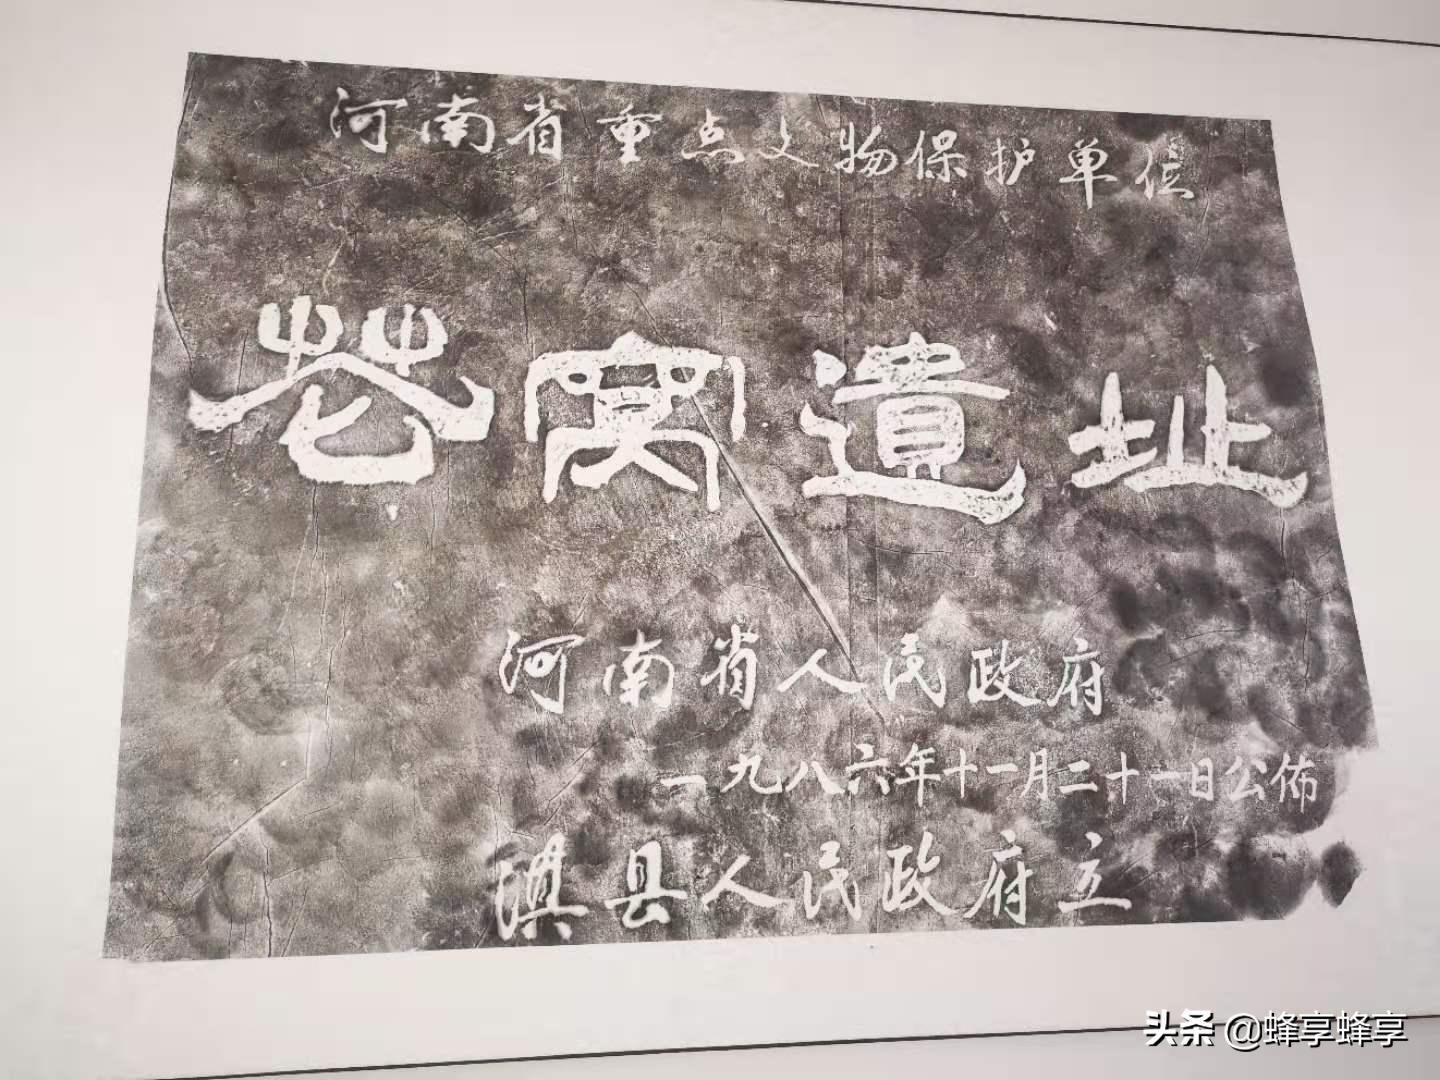 河南省重点文物保护单位
花窩遺址
河南省人民政府
一九八六年十一月二十一日公佈
淇县人民政府立
头条 @蜂享蜂享